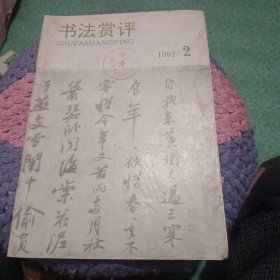 书法赏评
SHUFASHANGPING
1992 2
自我来黄州已过三寒
食年欲惜春去不
容惜今年又苦雨两月秋
萧瑟卧闻海棠花泥
汙燕支雪闇中偷負